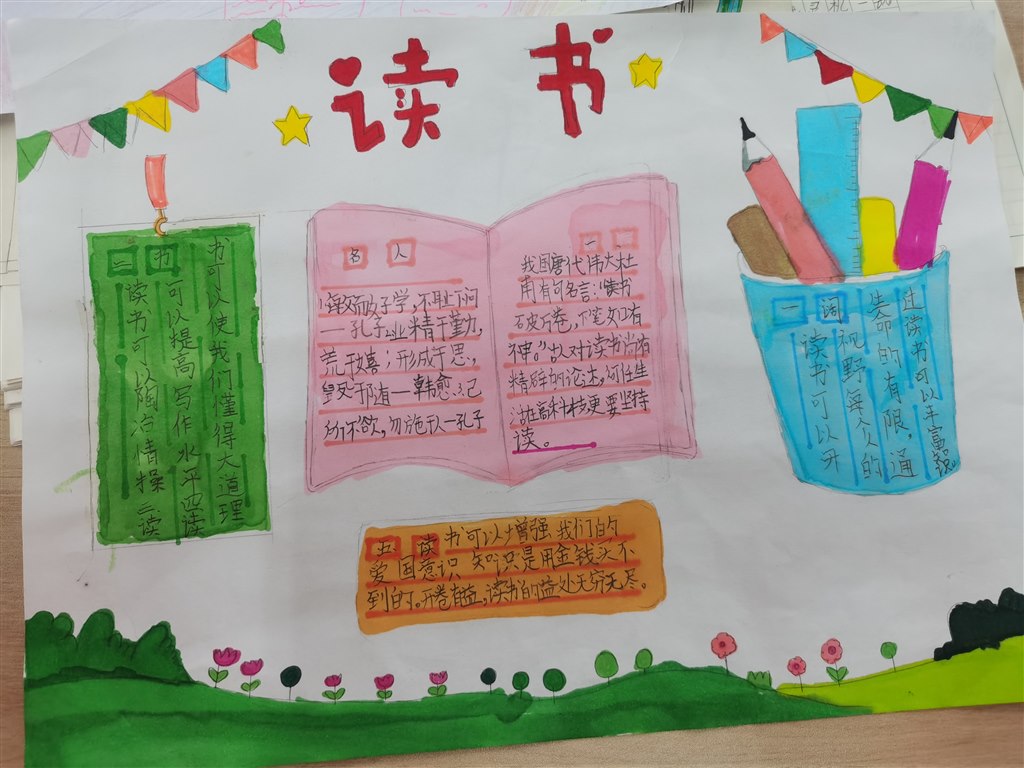 读书
二读书可以陶冶情操三读
书可以提高写作水平四读
书可以使我们懂得大道理
名人
而好学,不耻下问
一孔子业精于勤,
荒于嬉;形成于思,
一韩愈己
所不欲,勿施于人一孔子
一
我国唐代伟大杜
甫有句名言:“读书
破万卷,下笔如有
神。”故对读书尚有
精辟的论述,何
活在高科技更要坚持
读。
一读书可以开
阔视野每个人的
生命的有限,通
过读书可以丰富知识。
五读书可以增强我们的
爱国意识 知识是用金钱买不
到的。开卷有益,读书的益处无穷无尽。